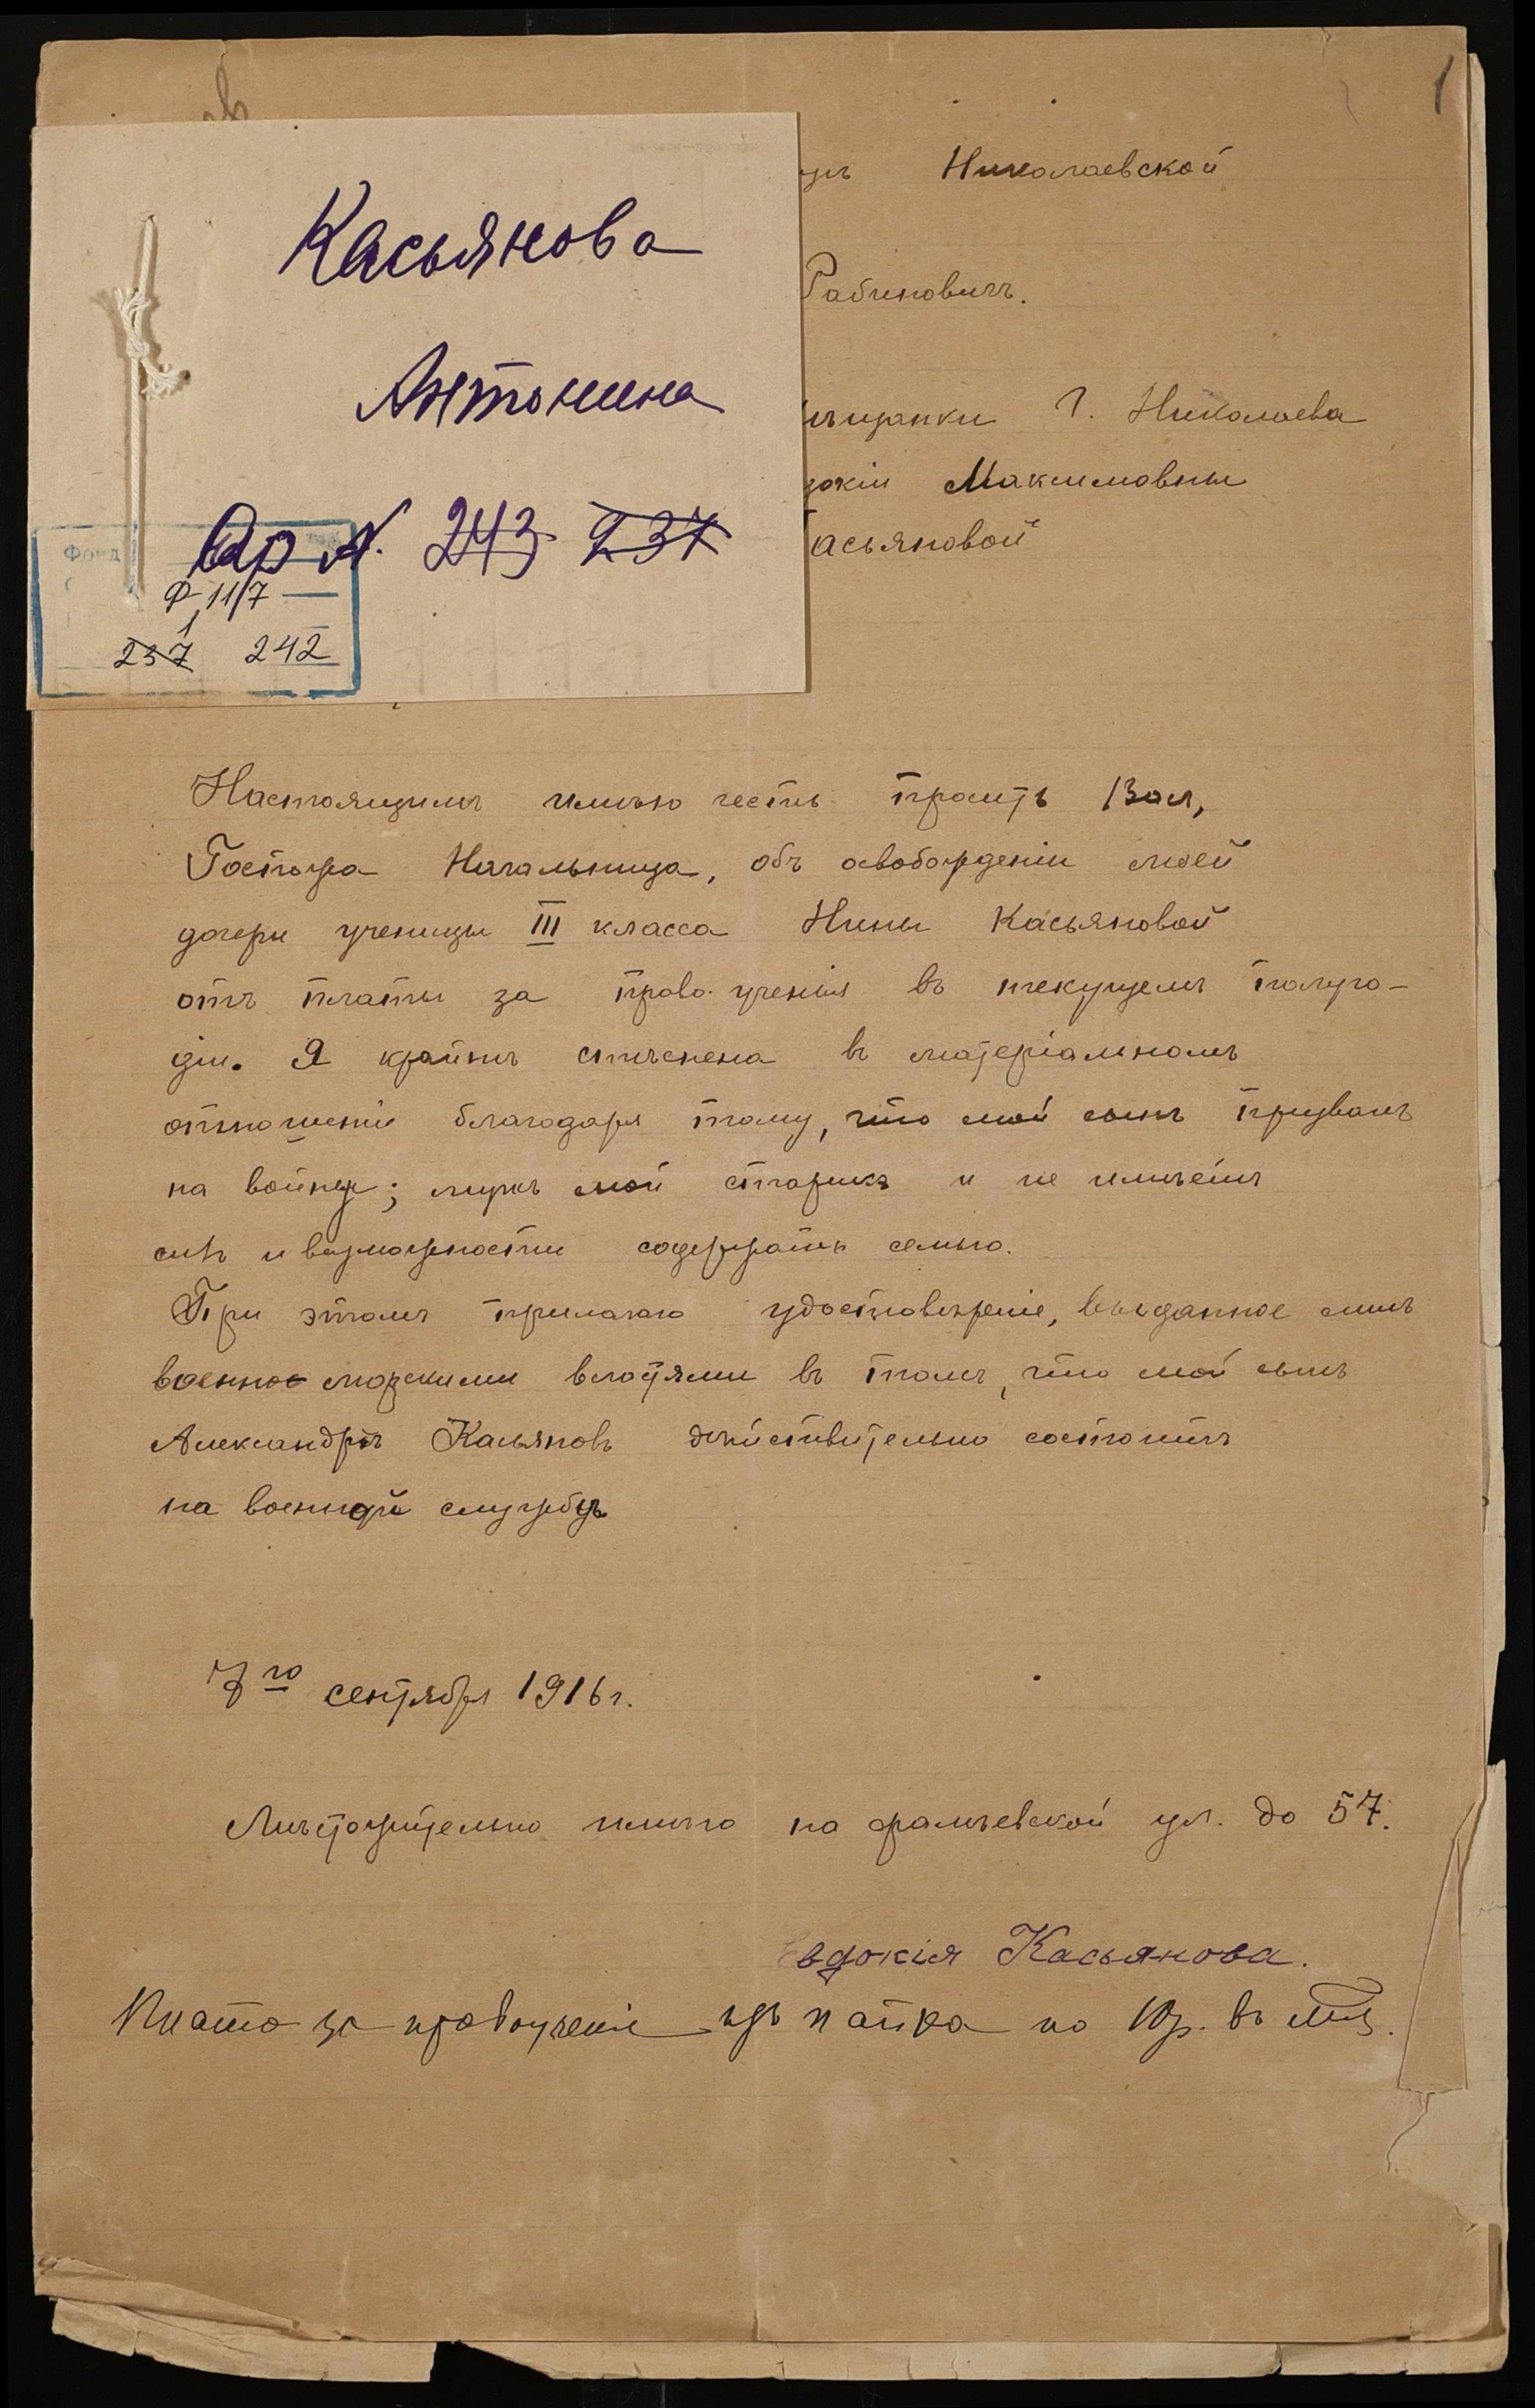 1
Николаевской
Рабиновичъ.
Касьянова
Антонина
г. Николаева
Максимовны
асьяновой
Ар N. 243 237
Фонд
Ф 117
1
237 242
Настоящимъ имѣю честь просить Васъ,
Госпожа Начальница, объ освобожденіи моей
дочери ученицы III класса Нины Касьяновой
отъ платы за право ученія въ текущемъ полуго-
діи. Я крайнѣ стѣснена въ матеріальномъ
отношеніи благодаря тому, что мой сынъ призванъ
на войну; мужъ мой старикъ и не имѣетъ
силъ и возможности содержать семью.
При этомъ прилагаю удостовѣреніе, выданное мнѣ
военно-морскими властями въ томъ, что мой сынъ
Александръ Касьяновъ дѣйствительно состоитъ
на военной службѣ
7го сентября 1916 г.
Мѣстожительно имѣю на фалѣевской ул. до 57.
Евдокія Касьянова.
Плата за правоученіе по 10р. въ